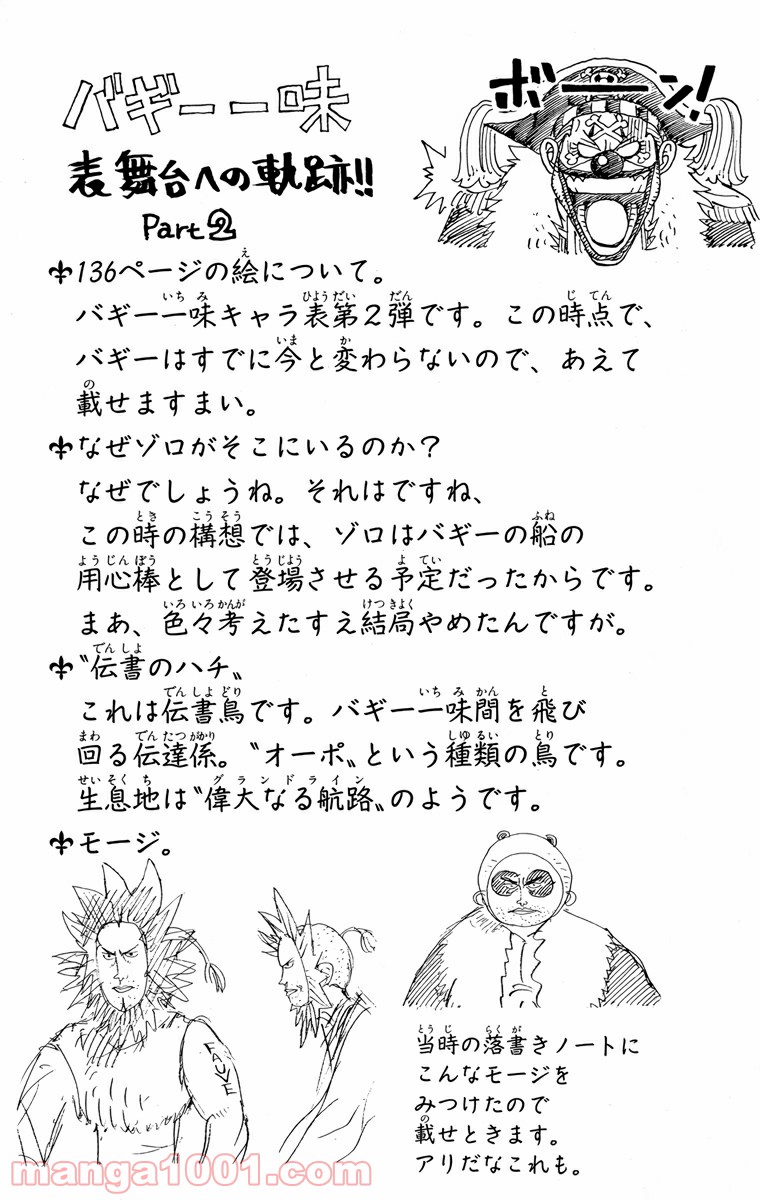 バギー一味
ボーン!
表舞台への軌跡!!
Part2
136ページの絵について。
バギー一味キャラ表第2弾です。この時点で、
バギーはすでに今と変わらないので、あえて
載せますまい。
なぜゾロがそこにいるのか?
なぜでしょうね。それはですね、
この時の構想では、ゾロはバギーの船の
用心棒として登場させる予定だったからです。
まあ、色々考えたすえ結局やめたんですが。
〝伝書のハチ〟
これは伝書鳥です。バギー一味間を飛び
回る伝達係。〝オーポ〟という種類の鳥です。
生息地は〝偉大なる航路〟のようです。
モージ。
FAUVE
当時の落書きノートに
こんなモージを
みつけたので
載せときます。
アリだなこれも。
manga1001.com